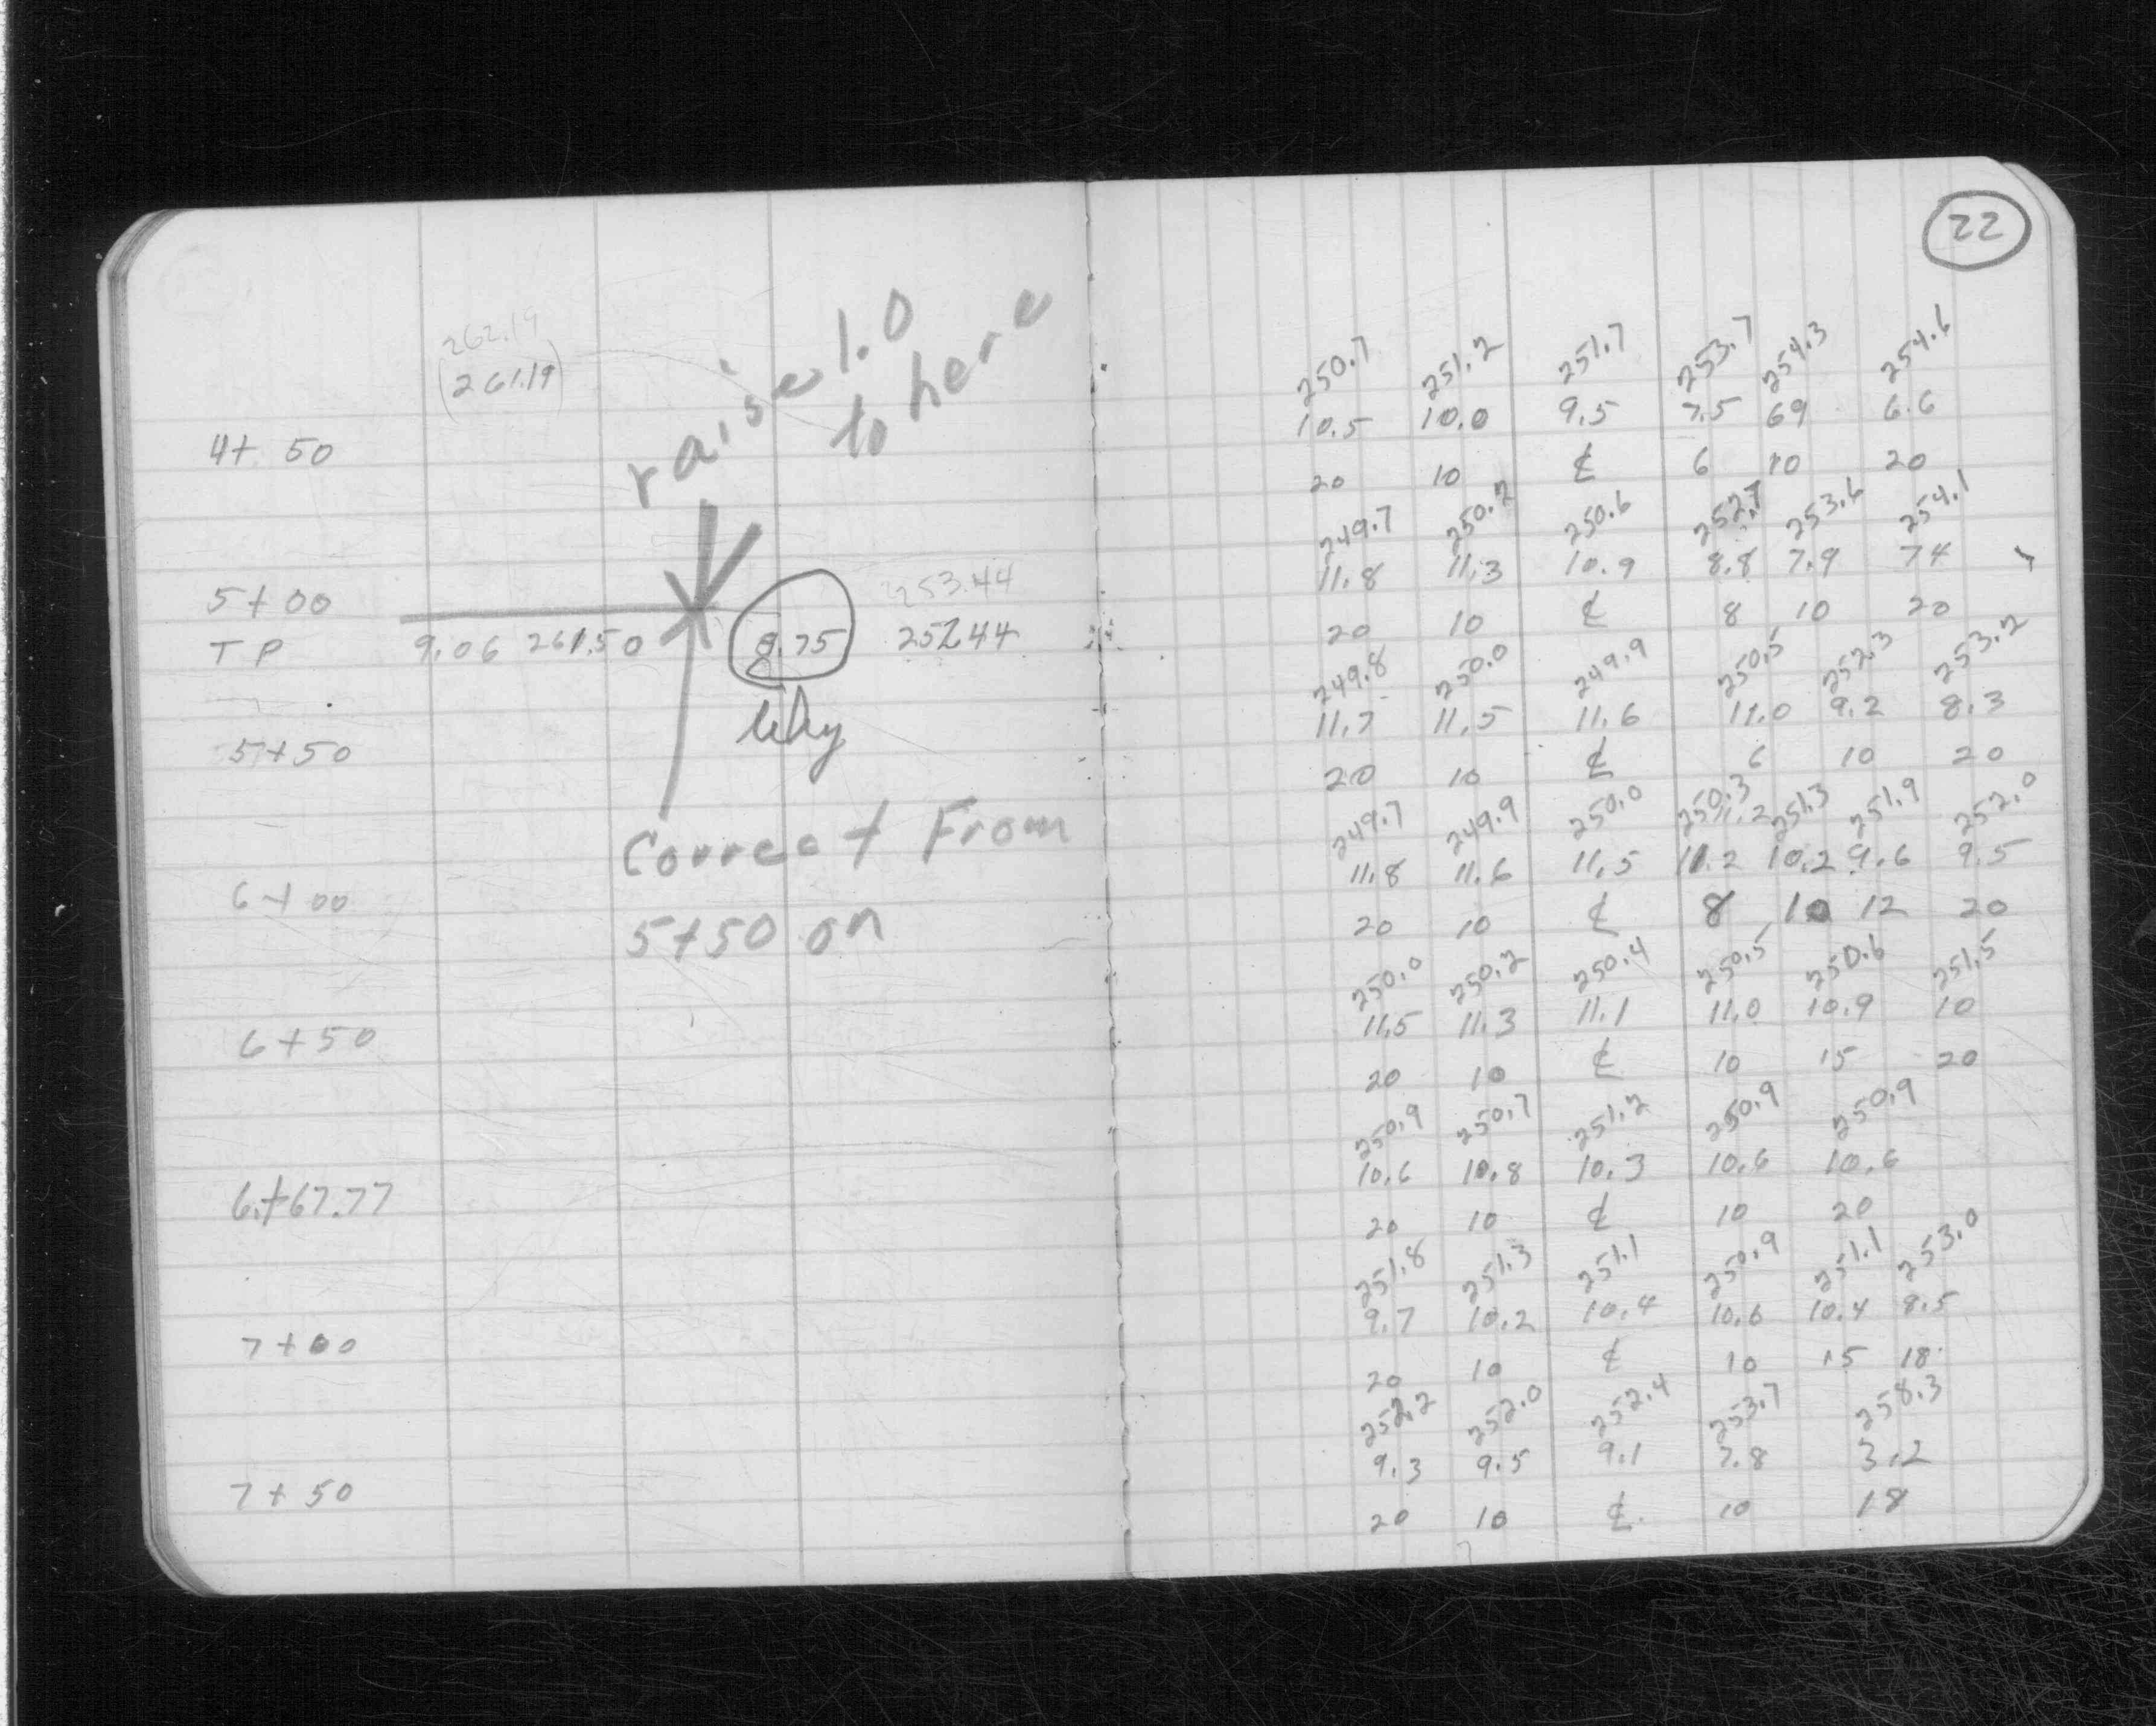 22
262.19
(261.19)
raise 1.0
to here
250.7 251.2 251.7 253.7 254.3 254.6
4+50 10.5 10.0 9.5 7.5 69 6.6
20 10 ℄ 6 10 20
249.7 250.2 250.6 252.7 253.6 254.1
5+00 253.44 11.8 11.3 10.9 8.8 7.9 74
TP 9.06 261.50 8.75 252.44 20 10 ℄ 8 10 20
249.8 250.0 249.9 250.5 252.3 253.2
why 11.7 11.5 11.6 11.0 9.2 8.3
5+50 20 10 ℄ 6 10 20
249.7 249.9 250.0 250.3 251.3 251.9 252.0
11.2
Correct From 11.8 11.6 11.5 11.2 10.2 9.6 9.5
6+00 20 10 ℄ 8 10 12 20
5+50 on
250.0 250.2 250.4 250.5 250.6 251.5
11.5 11.3 11.1 11.0 10.9 10
6+50 20 10 ℄ 10 15 20
250.9 250.7 251.2 250.9 250.9
10.6 10.8 10.3 10.6 10.6
6+67.77 20 10 ℄ 10 20
251.8 251.3 251.1 250.9 251.1 253.0
9.7 10.2 10.4 10.6 10.4 8.5
7+00 20 10 ℄ 10 15 18
252.2 252.0 252.4 253.7 258.3
9.3 9.5 9.1 7.8 3.2
7+50 20 10 ℄ 10 18